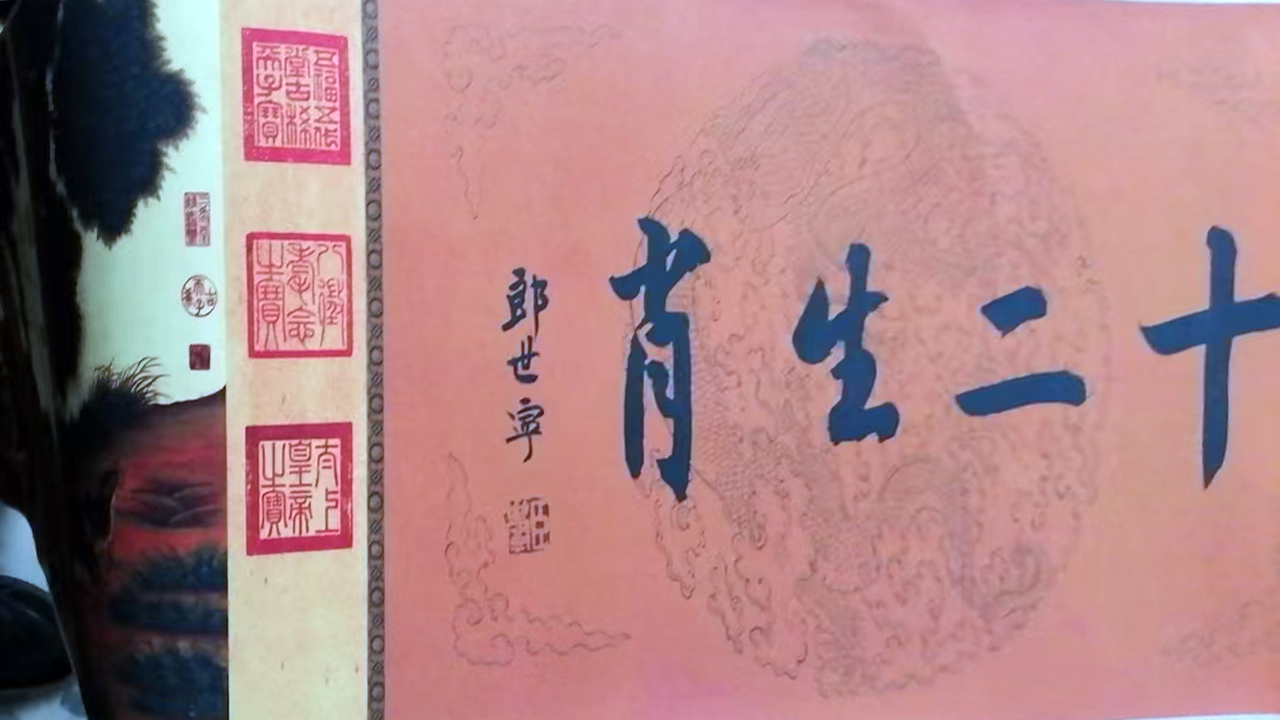 十二生肖
郎世寧
五福五代
堂古稀
天子寶
八徵
耄念
之寶
太上
皇帝
之寶